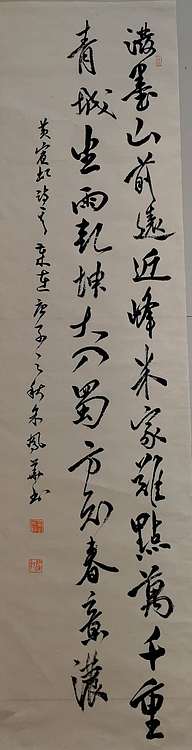 潑墨山前遠近峰米家難點萬千重
青城坐雨乾坤大入蜀方知春意濃
黃賓虹詩 庚子之秋朱鳳華書